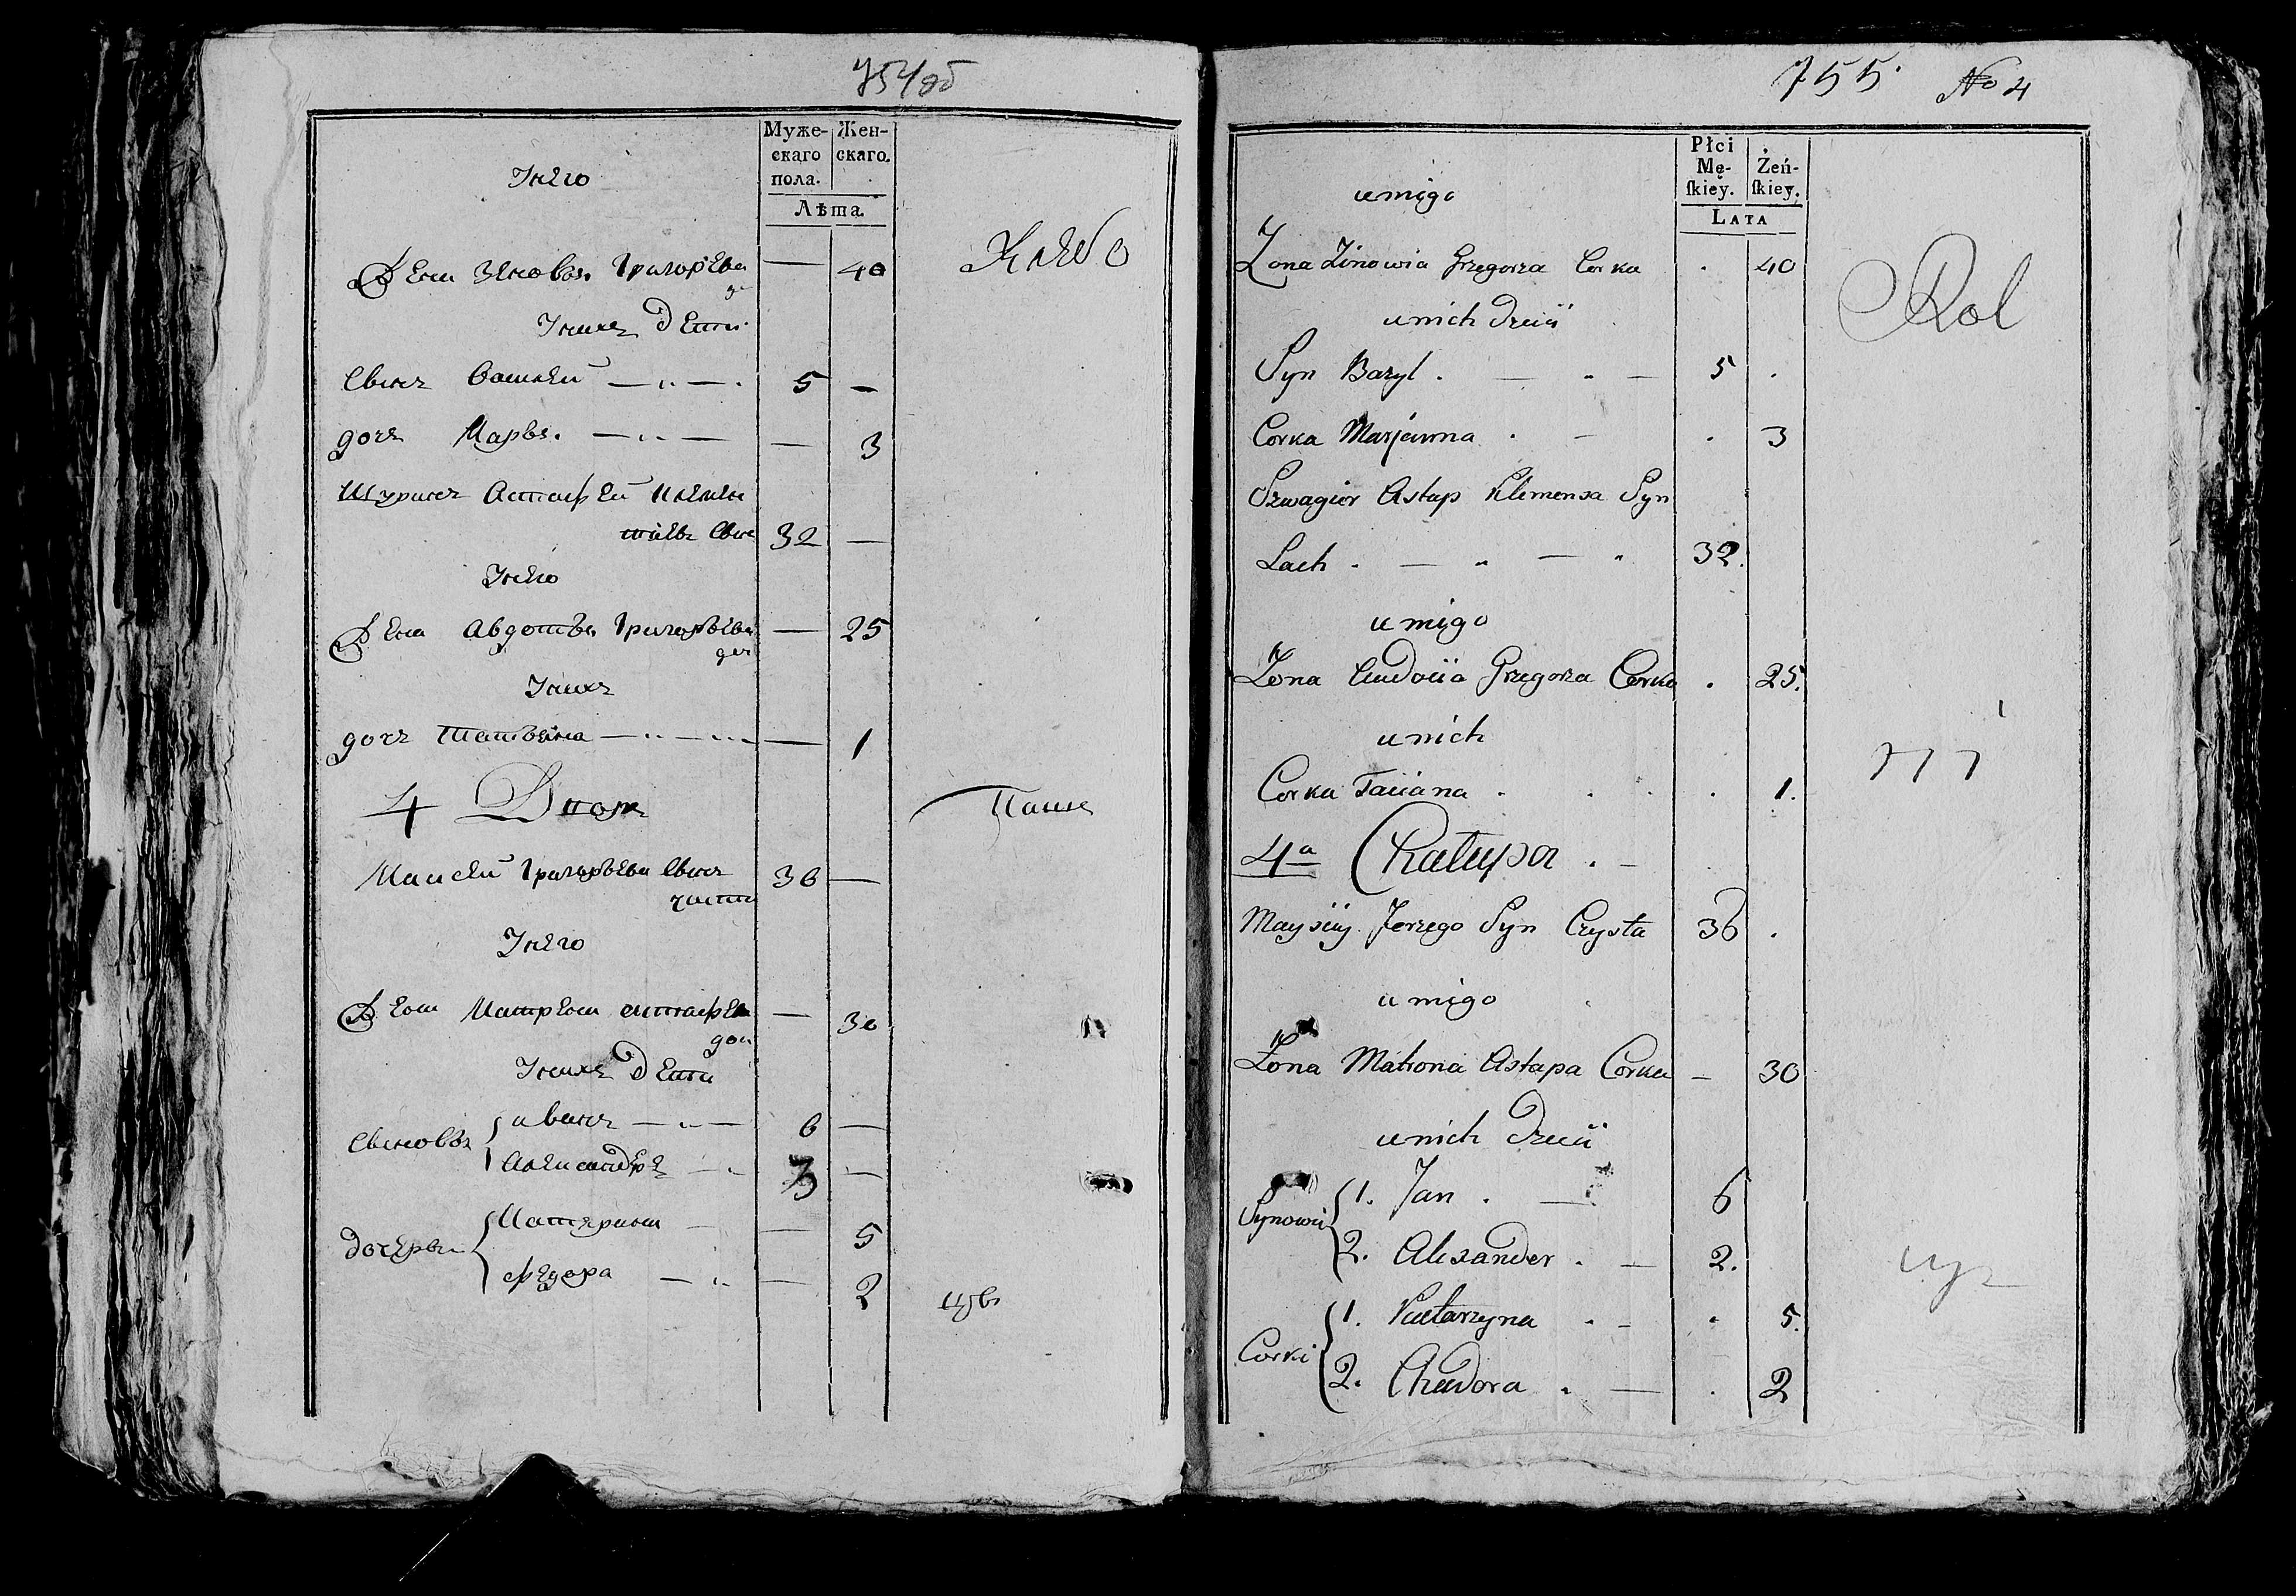 754об
Муже-
скаго
пола.
Жен-
скаго.
Лѣта.
Унего
Жена Зеновья Григорьева 40
дч
Унихъ дети
Сынъ Василей 5 —
дочь Марья — 3
Шуринъ Астафей Клемен
тьевъ Сынъ 32 —
Унего
Жена Авдотья Григорьева — 25
доч
Унихъ
дочь Татьяна — 1
4 Дворъ
Майсей Григорьевъ Сынъ 36 —
чисты
Унего
Жена Матрена астафьева — 30
доч
Унихъ дети
Сыновья { иванъ 6 —
Александръ 3 —
дочерьи { Катерина — 5
федора — 2
755 No 4
Płci
Mę-
ſkiey.
Żeń-
ſkiey.
LATA
u niego
Zona Zinowia Grzegorza Corka . 40
Rol
u nich dzieci
Syn Bazyl . 5 .
Corka Marjanna . . 3
Szwagier Astap Klemensa Syn
Lach . 32.
u niego
Zona Eudocia Grzegorza Corka . 25.
u nich
Corka Taciana . . 1.
4a Chałupa .
Mayśiey Jerzego Syn Czysta 36 .
u niego
Zona Matrona Astapa Corka — 30
u nich dzieci
Synowie { 1. Jan . 6
2. Alexander . 2.
Corki { 1. Katarzyna . 5.
2. Chwdora . . 2